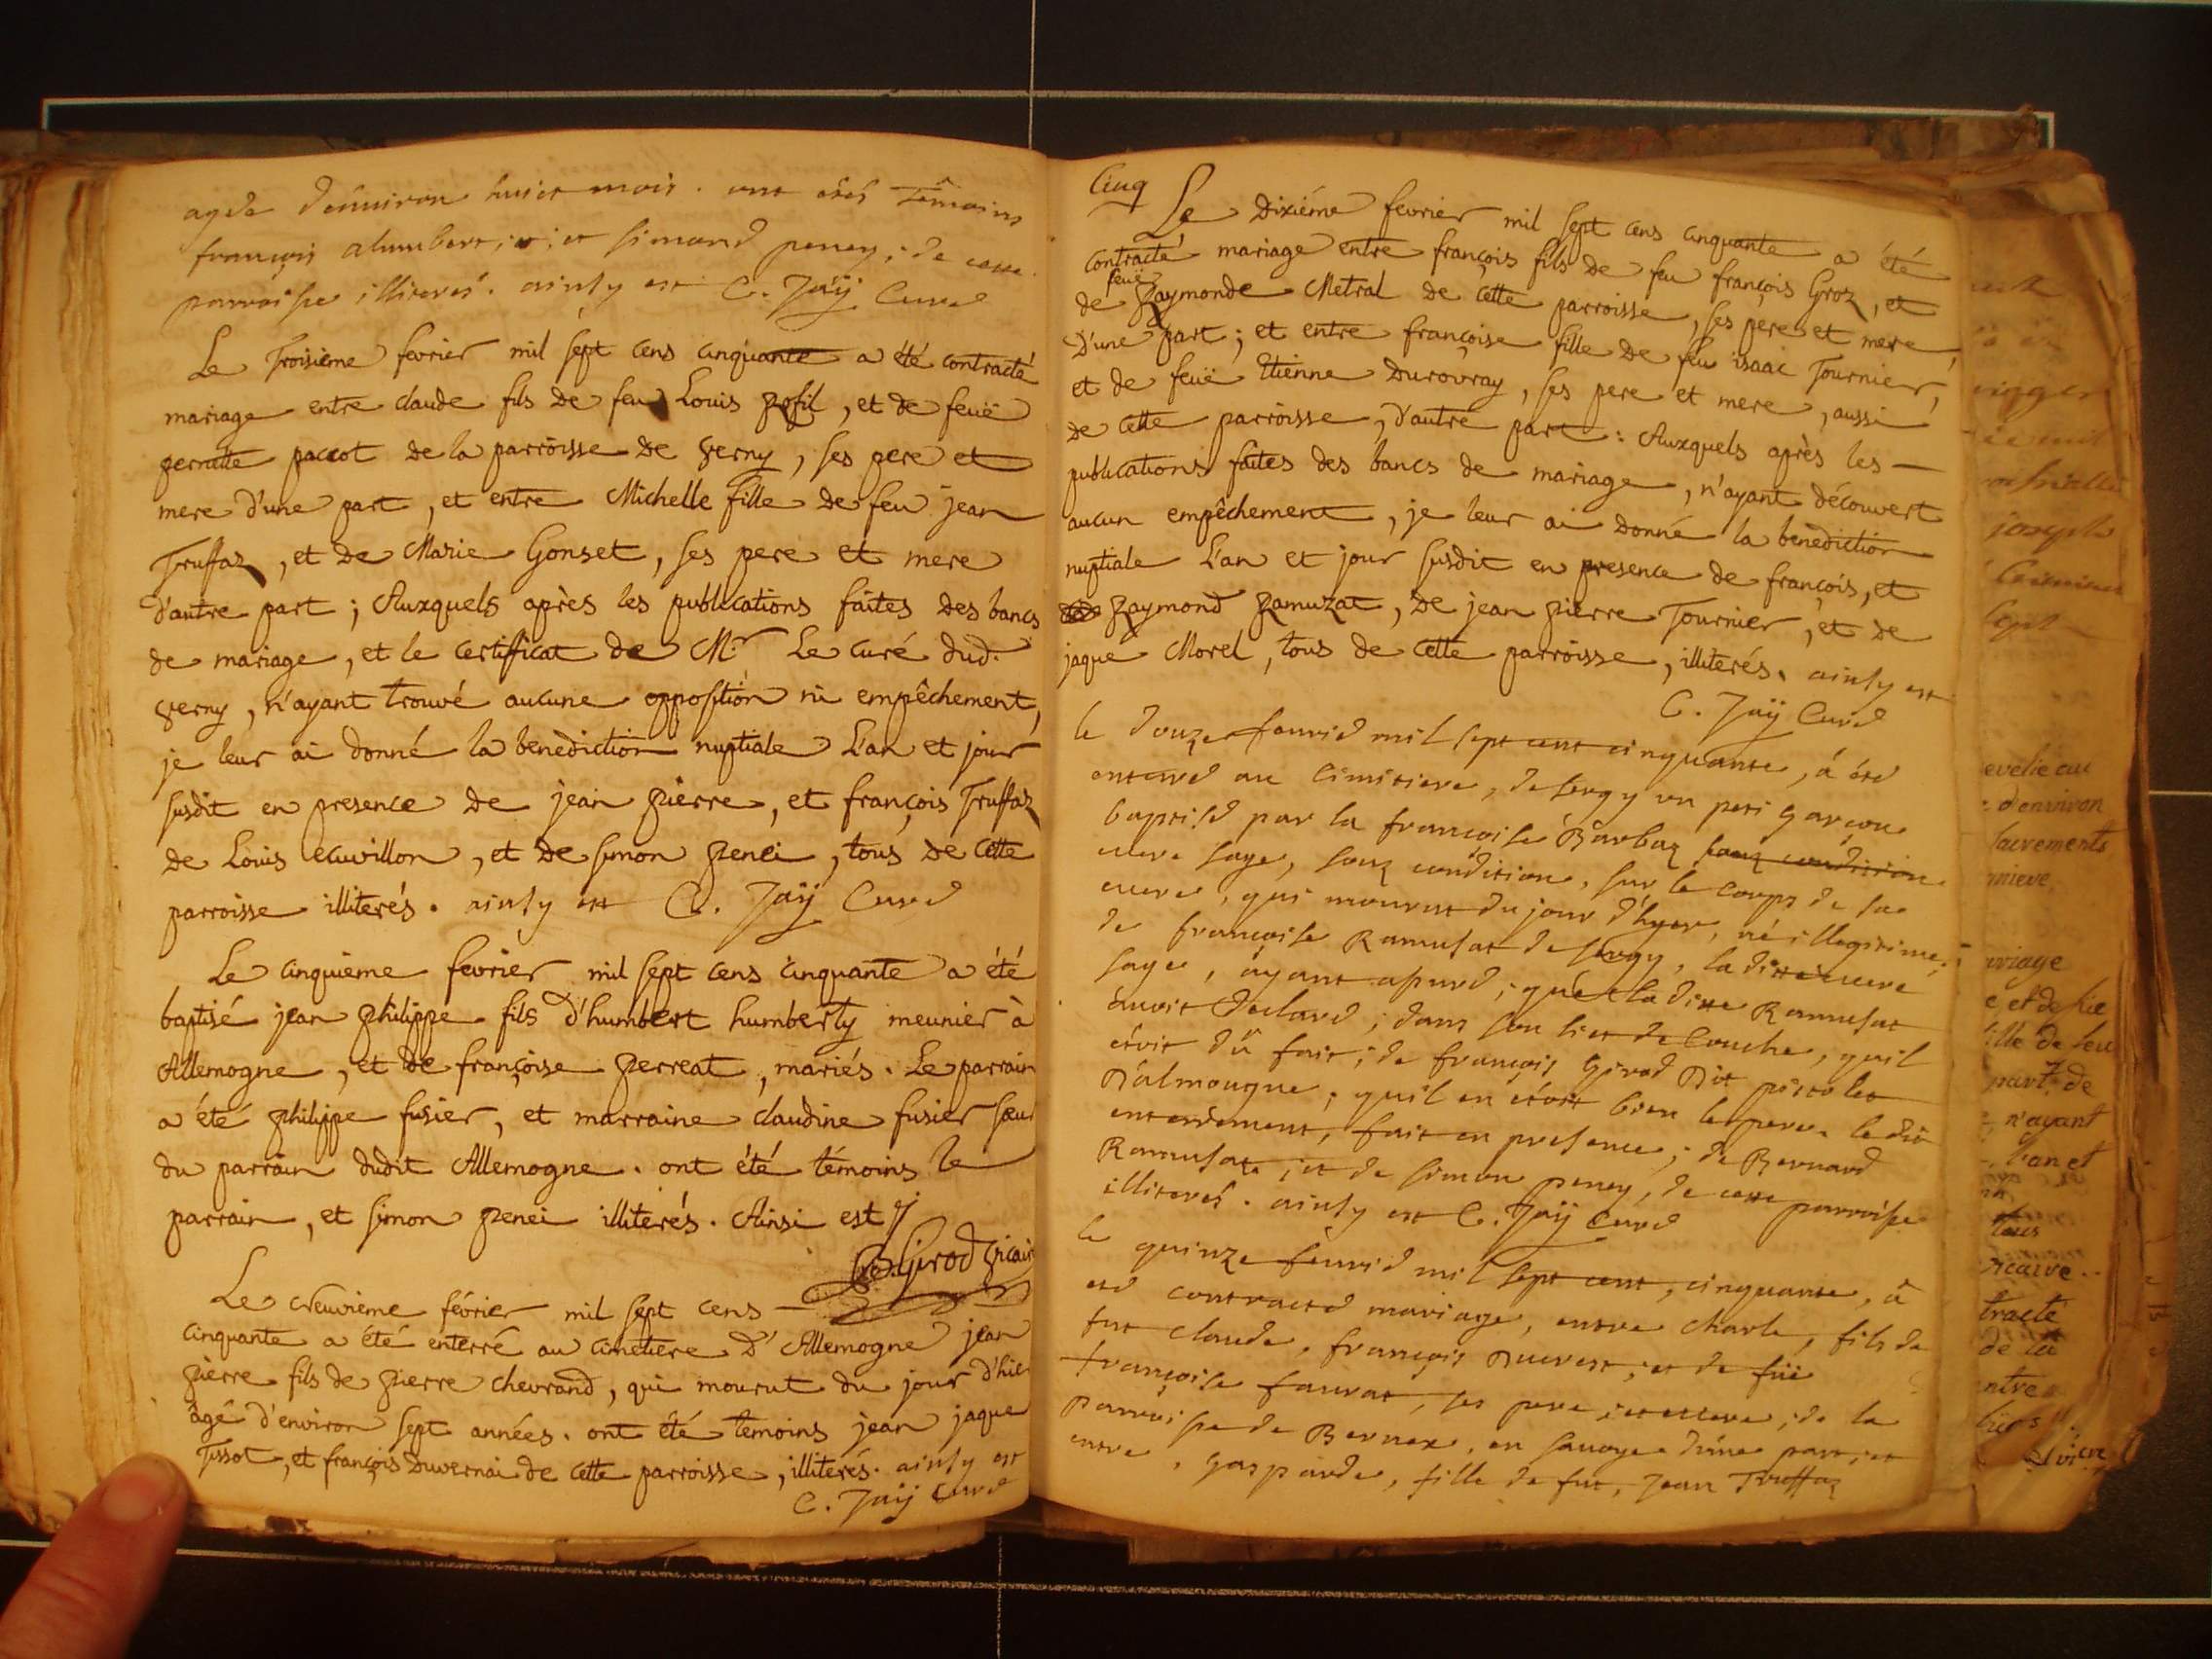 agée d'enuiron huict mois. ont étés Témoins
françois alumbert; et simond peney; de cette
parroisse illiterés. ainsy est C. Jaÿ Curé
Le Troisième fevrier mil sept cens cinquante a été contracté
mariage entre claude fils de feu Louis Rosil, et de feuë
pernette paccot de la parroisse de verny, ses pere et
mere d'une part, et entre Michelle fille de feu jean
Truffaz, et de Marie Gonset, ses pere et mere
d'autre part; Auxquels après les publications faites des bancs
de mariage, et le certifficat de M.r Le curé dud.
verny, n'ayant trouvé aucune opposition ni empêchement,
je leur ai donné la benediction nuptiale L'an et jour
susdit en presence de jean pierre, et françois Truffaz
de Louis ecuvillon, et de simon penei, tous de cette
parroisse illiterés. ainsy est C. Jaÿ Curé
Le cinquieme fevrier mil sept cens cinquante a été
baptisé jean philippe fils d'humbert humberty meunier à
Allemogne, et de françoise perreat, mariés. Le parrain
a été philippe fusier, et marraine claudine fusier sœur
du parrain dudit Allemogne. ont été témoins le
parrain, et simon penei illiterés. Ainsi est
Girod vicaire
Le Neuvieme février mil sept cens
cinquante a été enterré au cimetiere D'Allemogne jean
pierre fils de pierre chevrand, qui mourut du jour d'hier
âgé d'environ sept années. ont été temoins jean jaque
Tissot, et françois Duvernai de cette parroisse, illiterés. ainsy est
C. Jaÿ Curé
Cinq
Le Dixiéme fevrier mil sept cens cinquante a été
contracté mariage entre françois fils de feu françois Groz, et
de feuë Raymonde Metral de cette parroisse, ses pere et mere,
D'une part; et entre françoise fille de feu isaac Tournier,
et de feuë Etienne Durovray, ses pere et mere, aussi
de cette parroisse, d'autre part: Auxquels après les
publications faites des bancs de mariage, n'ayant découvert
aucun empêchement, je leur ai donné la benediction
nuptiale L'an et jour susdit en presence de françois, et
Raymond Ramuzat, de jean pierre Tournier, et de
jaque Morel, tous de cette parroisse, illiterés. ainsy est
C. Jaÿ Curé
le douze feurié mil sept cent cinquante, á été
enterré au cimitiere, de sergy un peti garçon
baptisé par la françoise Barbaz souz condition
mere sage, souz condition, sur le corps de sa
mere, qui mourut du jour d'hyer, né illegitime;
de françoise Ramusat de sergy, la ditte mere
sage, áyant asuré; que la ditte Ramusat
auoit déclaré; dans son lict de couche, quil
étoit dû fait; de françois Girod dit pistolet
D'almougne; quil en étoit bien le pere. le dit
enterrement, fait en presence; de Bernard
Ramusat; et de simon peney, de cette parroisse
illiterés. ainsy est C. Jaÿ Curé
le quinze feurié mil sept cent, cinquante, á
été contracté mariage, entre charle, fils de
fut claude, françois Ducrest; et de fuë
françoise fauvat, ses pere; et mere; de la
parroisse de Bernex, en sauoye d'une part; et
entre, gasparde, fille de fut, Jean Truffaz
evelie au
d'environ
sacrements
mariage
e et de fue
fille de feu
part, de
n'ayant
L'an et
tous
vicaire
tracté
de la
entre